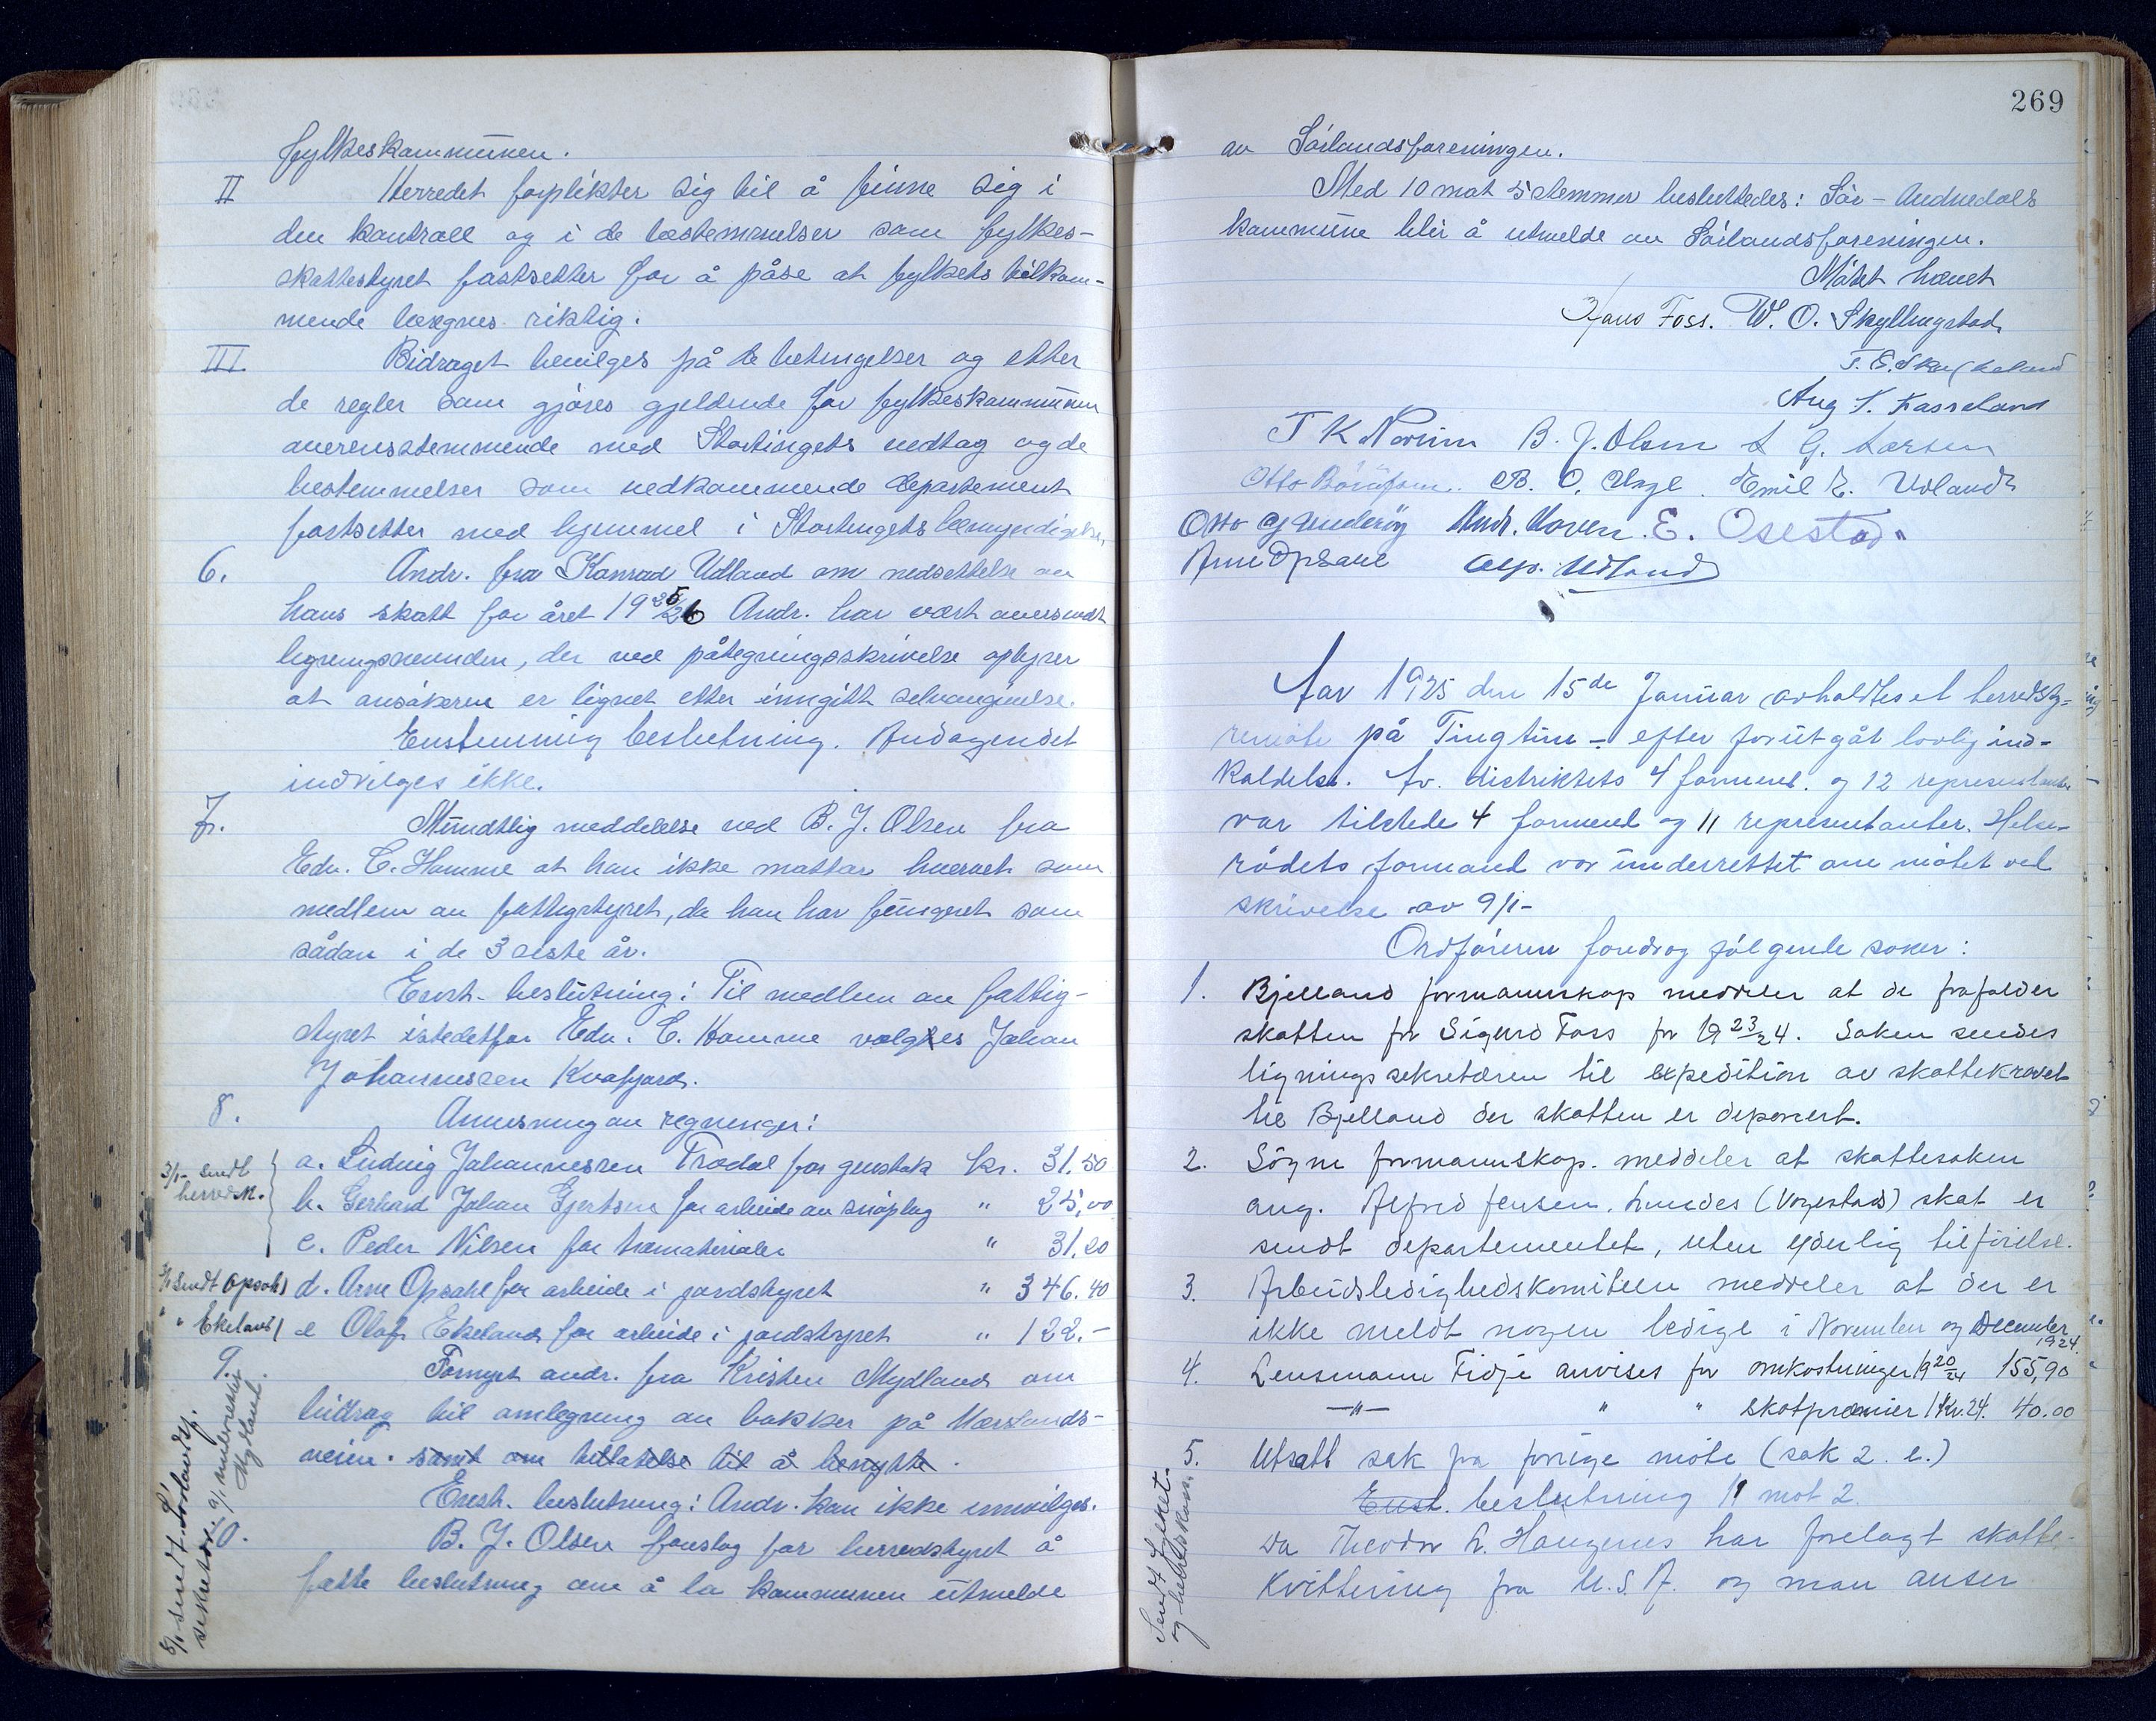 fylkeskommunen.
II Herredet forplikter sig til å finne sig i
den kontroll og i de bestemmelser som fylkes-
skattestyret fastsetter for å påse at fylkets tilkom-
mende beregnes riktig.
III. Bidraget bevilges på de betingelser og etter
de regler som gjøres gjeldende for fylkeskommunen
overensstemmende med Stortingets vedtag og de
bestemmelser som vedkommende departement
fastsetter med hjemmel i Stortingets bemyndigelse.
6. Andr. fra Konrad Udland om nedsettelse av
hans skatt for året 1925/26 Andr. har vært oversendt
ligningsnevnden, der ved påtegningsskrivelse oplyser
at ansøkeren er lignet etter inngitt selvangivelse.
Enstemmig beslutning. Andragendet
indvilges ikke.
7. Mundtlig meddelelse ved B. J. Olsen fra
Edv. C. Homme at han ikke mottar hvervet som
medlem av fattigstyret, da han har fungeret som
sådan i de 3 siste år.
Enst. beslutning: Til medlem av fattig-
styret istedetfor Edv. C. Homme velges Johan
Johannessen Kvafjord.
8. Anvisning av regninger:
3/1- sendt
herredsk.
a. Ludvig Johannessen Trodal for grustak kr. 31.50
b. Gerhard Johan Gjertsen for arbeide av snøplog " 25,00
c. Peder Nilsen for tremateriale " 31.20
3/1 sendt Opsahl d. Arne Opsahl for arbeide i jordstyret " 346.40
" " Ekeland e Olaf Ekeland for arbeide i jordstyret " 122.-
9. Fornyet andr. fra Kristen Mydland om
bidrag til omlegning av bakker på
veien. samt om tillatelse til å benytte.
Enst. beslutning: Andr. kan ikke innvilges.
9/1 underrettet
Mydland.
10. B. J. Olsen forslag for herredstyret å
fatte beslutning om å la kommunen utmelde
8/1 sendt Sørlandsf.
sekretær.
269
av Sørlandsforeningen.
Med 10 mot 5 stemmer besluttedes: Sør-Audnedals
kommune blir å utmelde av Sørlandsforeningen.
Møtet hævet
Hans Foss. W. O. Skyllingstad
T. E.
Aug
T K Norum B. J. Olsen G. Larsen
Otto B. O. Emil E. Udland
Otto E. Osestad.
Arne Opsahl Udland
Aar 1925 den 15de Januar avholdtes et herredsty-
remøte på Tingtun - efter forutgåt lovlig ind-
kaldelse. Av distriktets 4 formend. og 12 representanter
var tilstede 4 formend og 11 representanter. Helse-
rådets formand var underrettet om møtet ved
skrivelse av 9/1-
Ordføreren foredrog følgende saker:
1. Bjelland formannskap meddeler at de frafalder
skatten for Sigurd Foss for 1923/24. Saken sendes
ligningssekretæren til expedition av skattekravet
til Bjelland der skatten er deponert.
2. Søgne formannskap. meddeler at skattesaken
ang. Alfred Jensen. Lundes (Vogestad) skat er
sendt departementet, uten yderlig tilførelse.
3. Arbeidsledighedskomiteen meddeler at der er
ikke meldt nogen ledige i November og December
1924.
4. Lensmann Fidje anvises for omkostninger 1920/24 155,90
—"— " " skotpremier 1 kv. 24. 40.00
5. Utsatt sak fra forrige møte (sak 2. e.)
Enst. beslutning 11 mot 2.
Da Theodor L. Haugenes har forelagt skatte-
kvittering fra U.S.A. og man anser